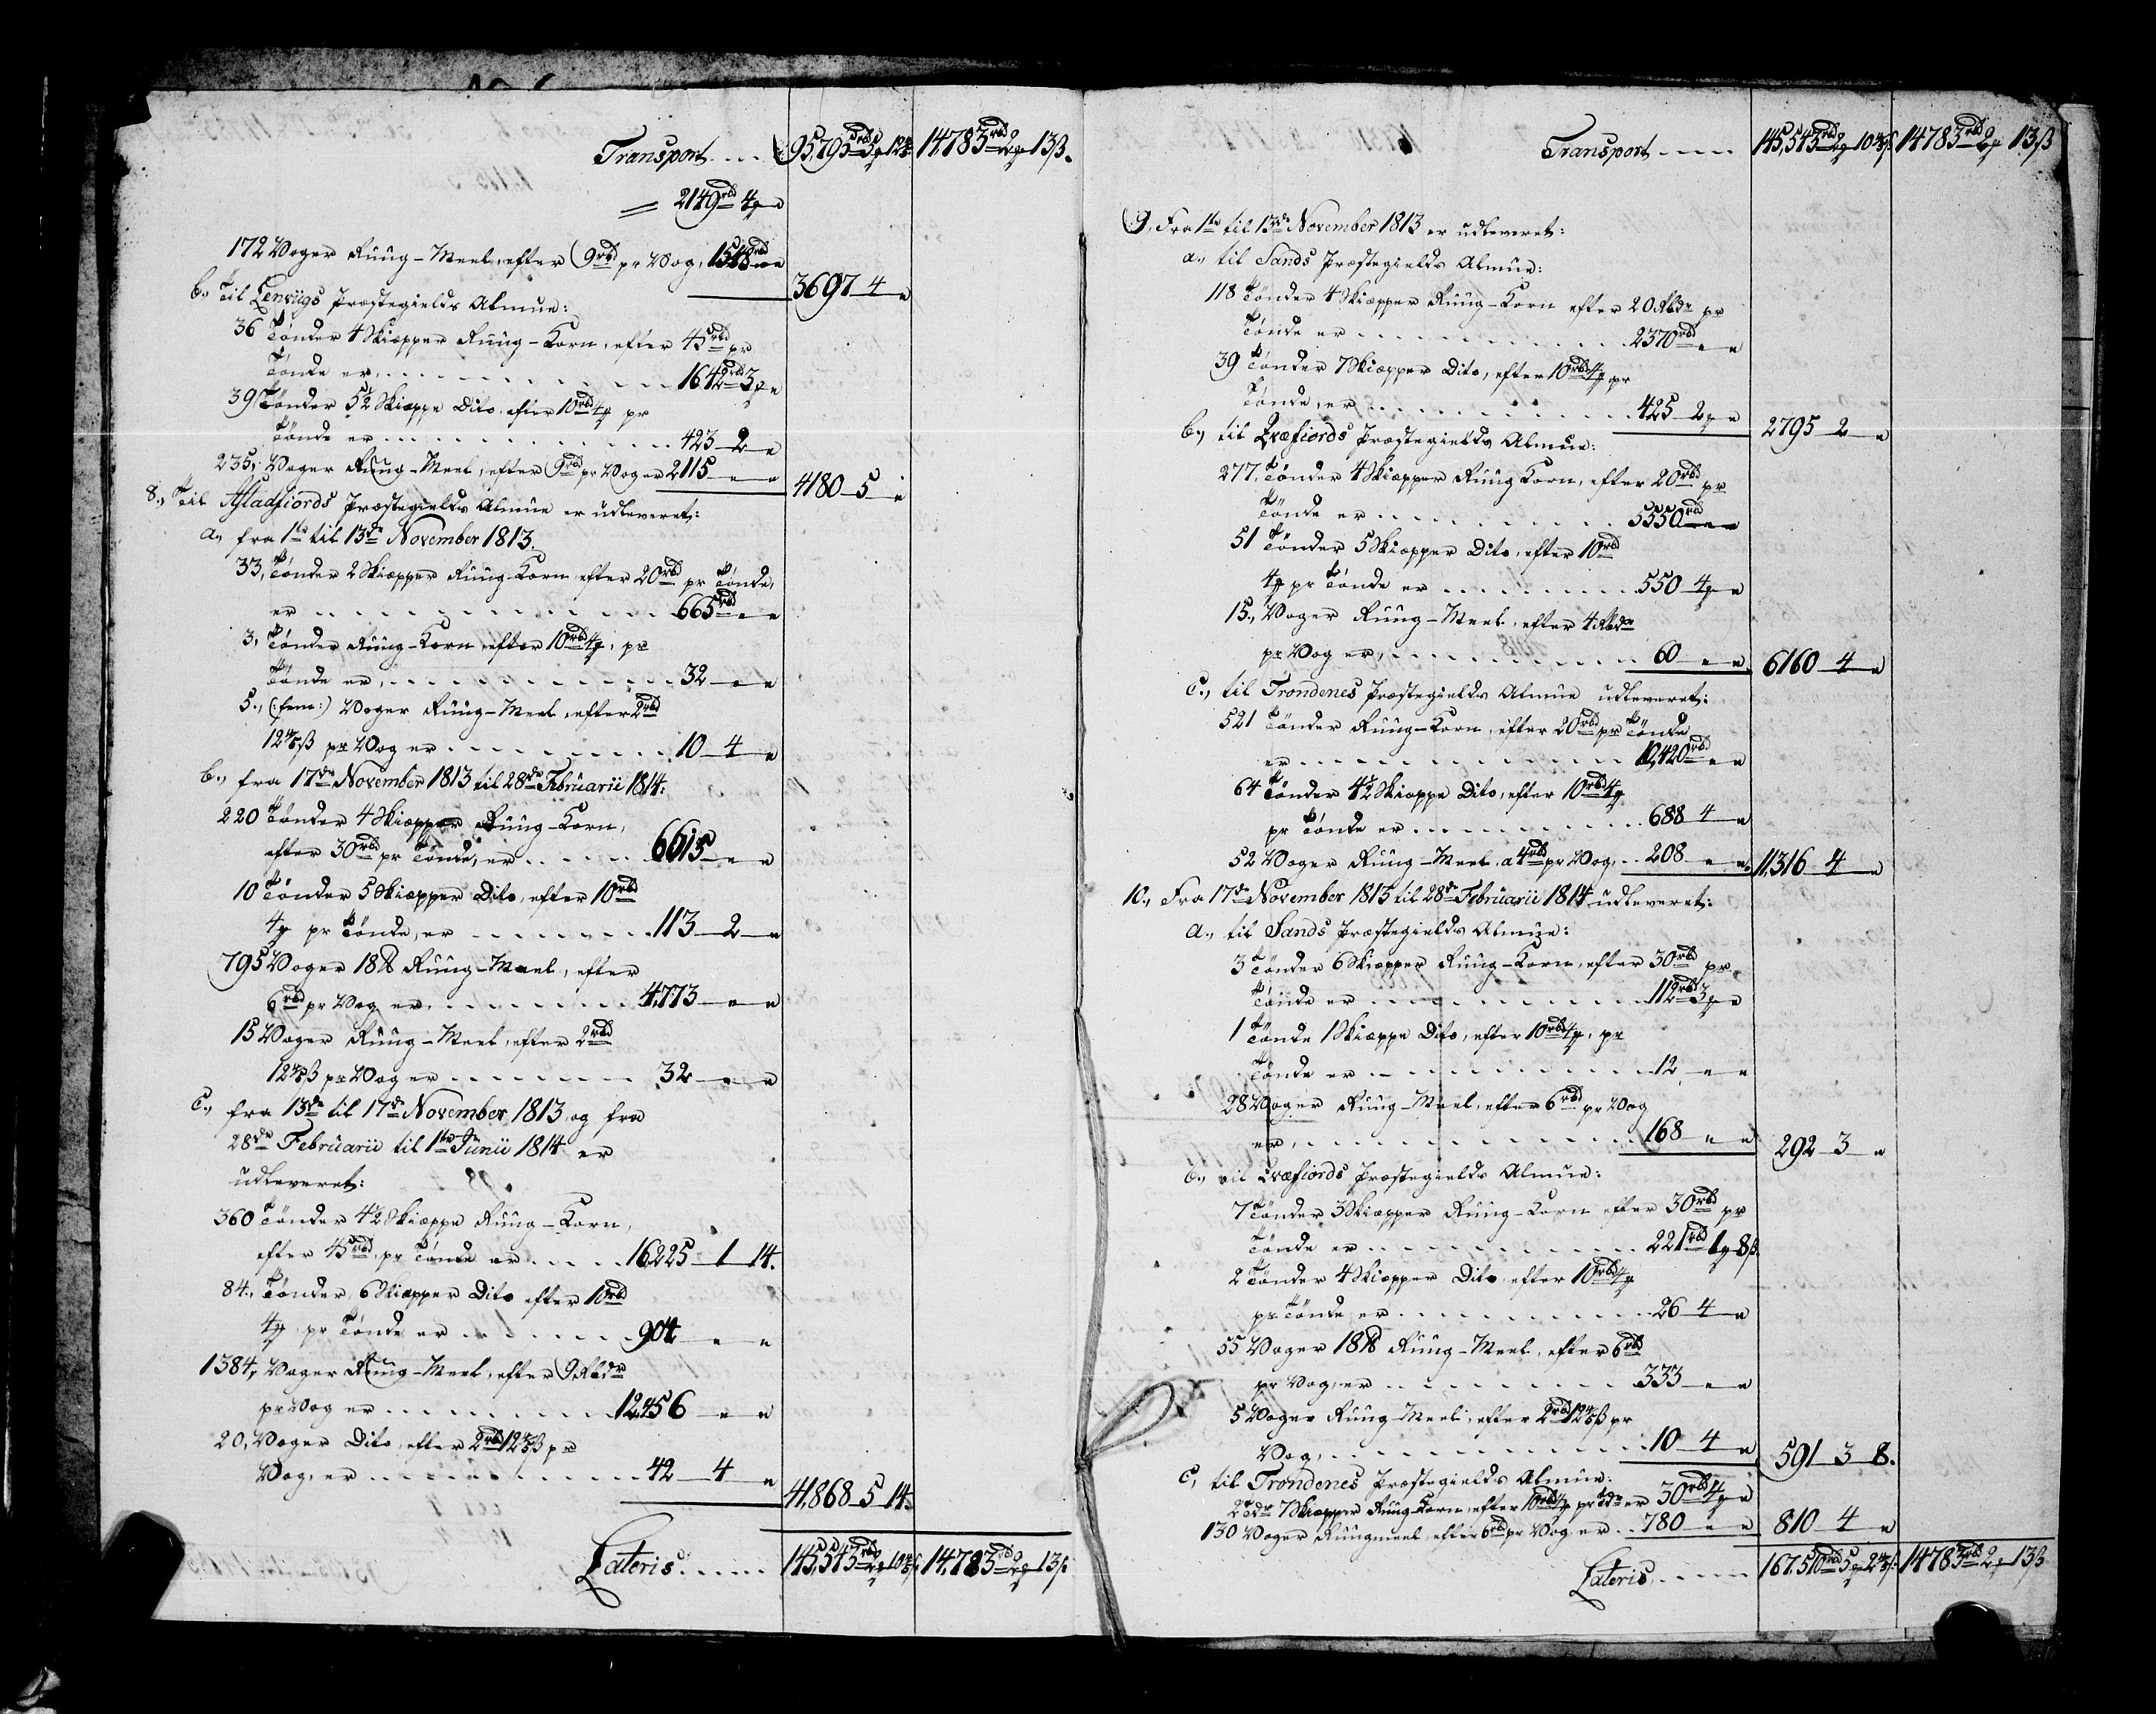 Transport .... 95,795rbd 3 12 14783rbd 2 13ß.
= 2149rbd 4
172 Voger Ruug-Meel, efter 9rbd pr Vog, 1548rbd
3697 4
b., Til Lenviigs Præstegields Almue:
36 Tönder 4 Skiæpper Ruug-Korn, efter 45rbd pr
Tönde er, .... 1642rbd 3
39 Tönder 5½ Skiæppe Dito, efter 10rbd 4 pr
Tönde er .... 423 2
235, Voger Ruug-Meel, efter 9rbd pr Voger 2115
4180 5
8., Til Astadfiords Præstegields Almue er udleveret:
a., fra 1te til 13de November 1813.
33, Tönder 2 Skiæpper Ruug-Korn, efter 20rbd pr Tönde,
er .... 665rbd
3, Tönder Ruug-Korn efter 10rbd 4, pr
Tönde er, .... 32
5., (: fem:) Voger Ruug-Meel, efter 2rbd
12⅘ß pr Vog er .... 10 4
b., fra 17de November 1813 til 28de Februarii 1814:
220 Tönder 4 Skiæpper Ruug-Korn,
efter 30rbd pr Tönde, er .... 6615
10 Tönder 5 Skiæpper Dito, efter 10rbd
4 pr Tönde, er .... 113 2
795 Voger 18 ℔ Ruug-Meel, efter
6rbd pr Vog er .... 4,773
15 Voger Ruug-Meel, efter 2rbd
12⅘ß pr Vog er .... 32
c., fra 13de til 17de November 1813 og fra
28de Februarii til 1te Junii 1814 er
udleveret:
360 Tönder 4½ Skiæppe Ruug-Korn,
efter 45rbd, pr Tönde er .... 16,225 1 14.
84., Tönder 6 Skiæpper Dito efter 10rbd
4, pr Tönde er .... 904
1384, Voger Ruug-Meel, efter 9 Rbdr
pr Vog er .... 12,456
20, Voger Dito, efter 2rbd 12⅘ß pr
Vog, er .... 42 4
41,868 5 14.
Lateris .... 145,543rbd 2 10 14,783rbd 2 13ß.
Transport .... 145,543rbd 2 10 14783rbd 2 13ß
9, Fra 1te til 13de November 1813 er udleveret:
a., til Sands Præstegields Almue:
118 Tönder 4 Skiæpper Ruug-Korn efter 20 Rbdr pr
Tönde er .... 2370rbd
39 Tönder 7 Skiæpper Dito, efter 10rbd 4 pr
Tönde, er .... 425 2
2795 2
b., til Qvæfiords Præstegields Almue:
277, Tönder 4 Skiæpper Ruug Korn, efter 20rbd pr
Tönde er .... 5550rbd
51 Tönder 5 Skiæpper Dito, efter 10rbd
4 pr Tönde er .... 550 4
15., Voger Ruug-Meel, efter 4 Rbdr
pr Vog er, .... 60
6160 4
c., til Trondenes Præstegields Almue udleveret:
521 Tönder Ruug-Korn, efter 20rbd pr Tönde
er .... 10,420rbd
64 Tönder 4½ Skiæppe Dito, efter 10rbd 4
pr Tönde er .... 688 4
52 Voger Ruug-Meel, a 4rbd pr Vog, .. 208
11,316 4
10., Fra 17de November 1813 til 28de Februarii 1814 udleveret:
a., til Sands Præstegields Almue:
3 Tönder 6 Skiæpper Ruug-Korn, efter 30rbd pr
Tönde er .... 112rbd 3
1 Tönde 1 Skiæppe Dito, efter 10rbd 4, pr
Tönde er .... 12
28 Voger Ruug-Meel, efter 6rbd pr Vog
er, .... 168
292 3
b., til Qvæfiords Præstegields Almue:
7 Tönder 3 Skiæpper Ruug-Korn efter 30rbd pr
Tönde er .... 221rbd 1 8ß.
2 Tönder 4 Skiæpper Dito, efter 10rbd 4
pr Tönde er .... 26 4
55 Voger 18 ℔ Ruug-Meel, efter 6rbd
pr Vog, er .... 333
5 Voger Ruug-Meel, efter 2rbd 12⅘ß pr
Vog, .... 10 4
591 3 8.
c, til Trondenes Præstegields Almue:
2 Tdr 7 Skiæpper Ruug-Korn, efter 10rbd 4 pr Tdr er 30rbd 4
130 Voger Ruugmeel, efter 6rbd pr Vog er .. 780
810 4
Lateris .... 167,510rbd 5 2 14783rbd 2 13ß